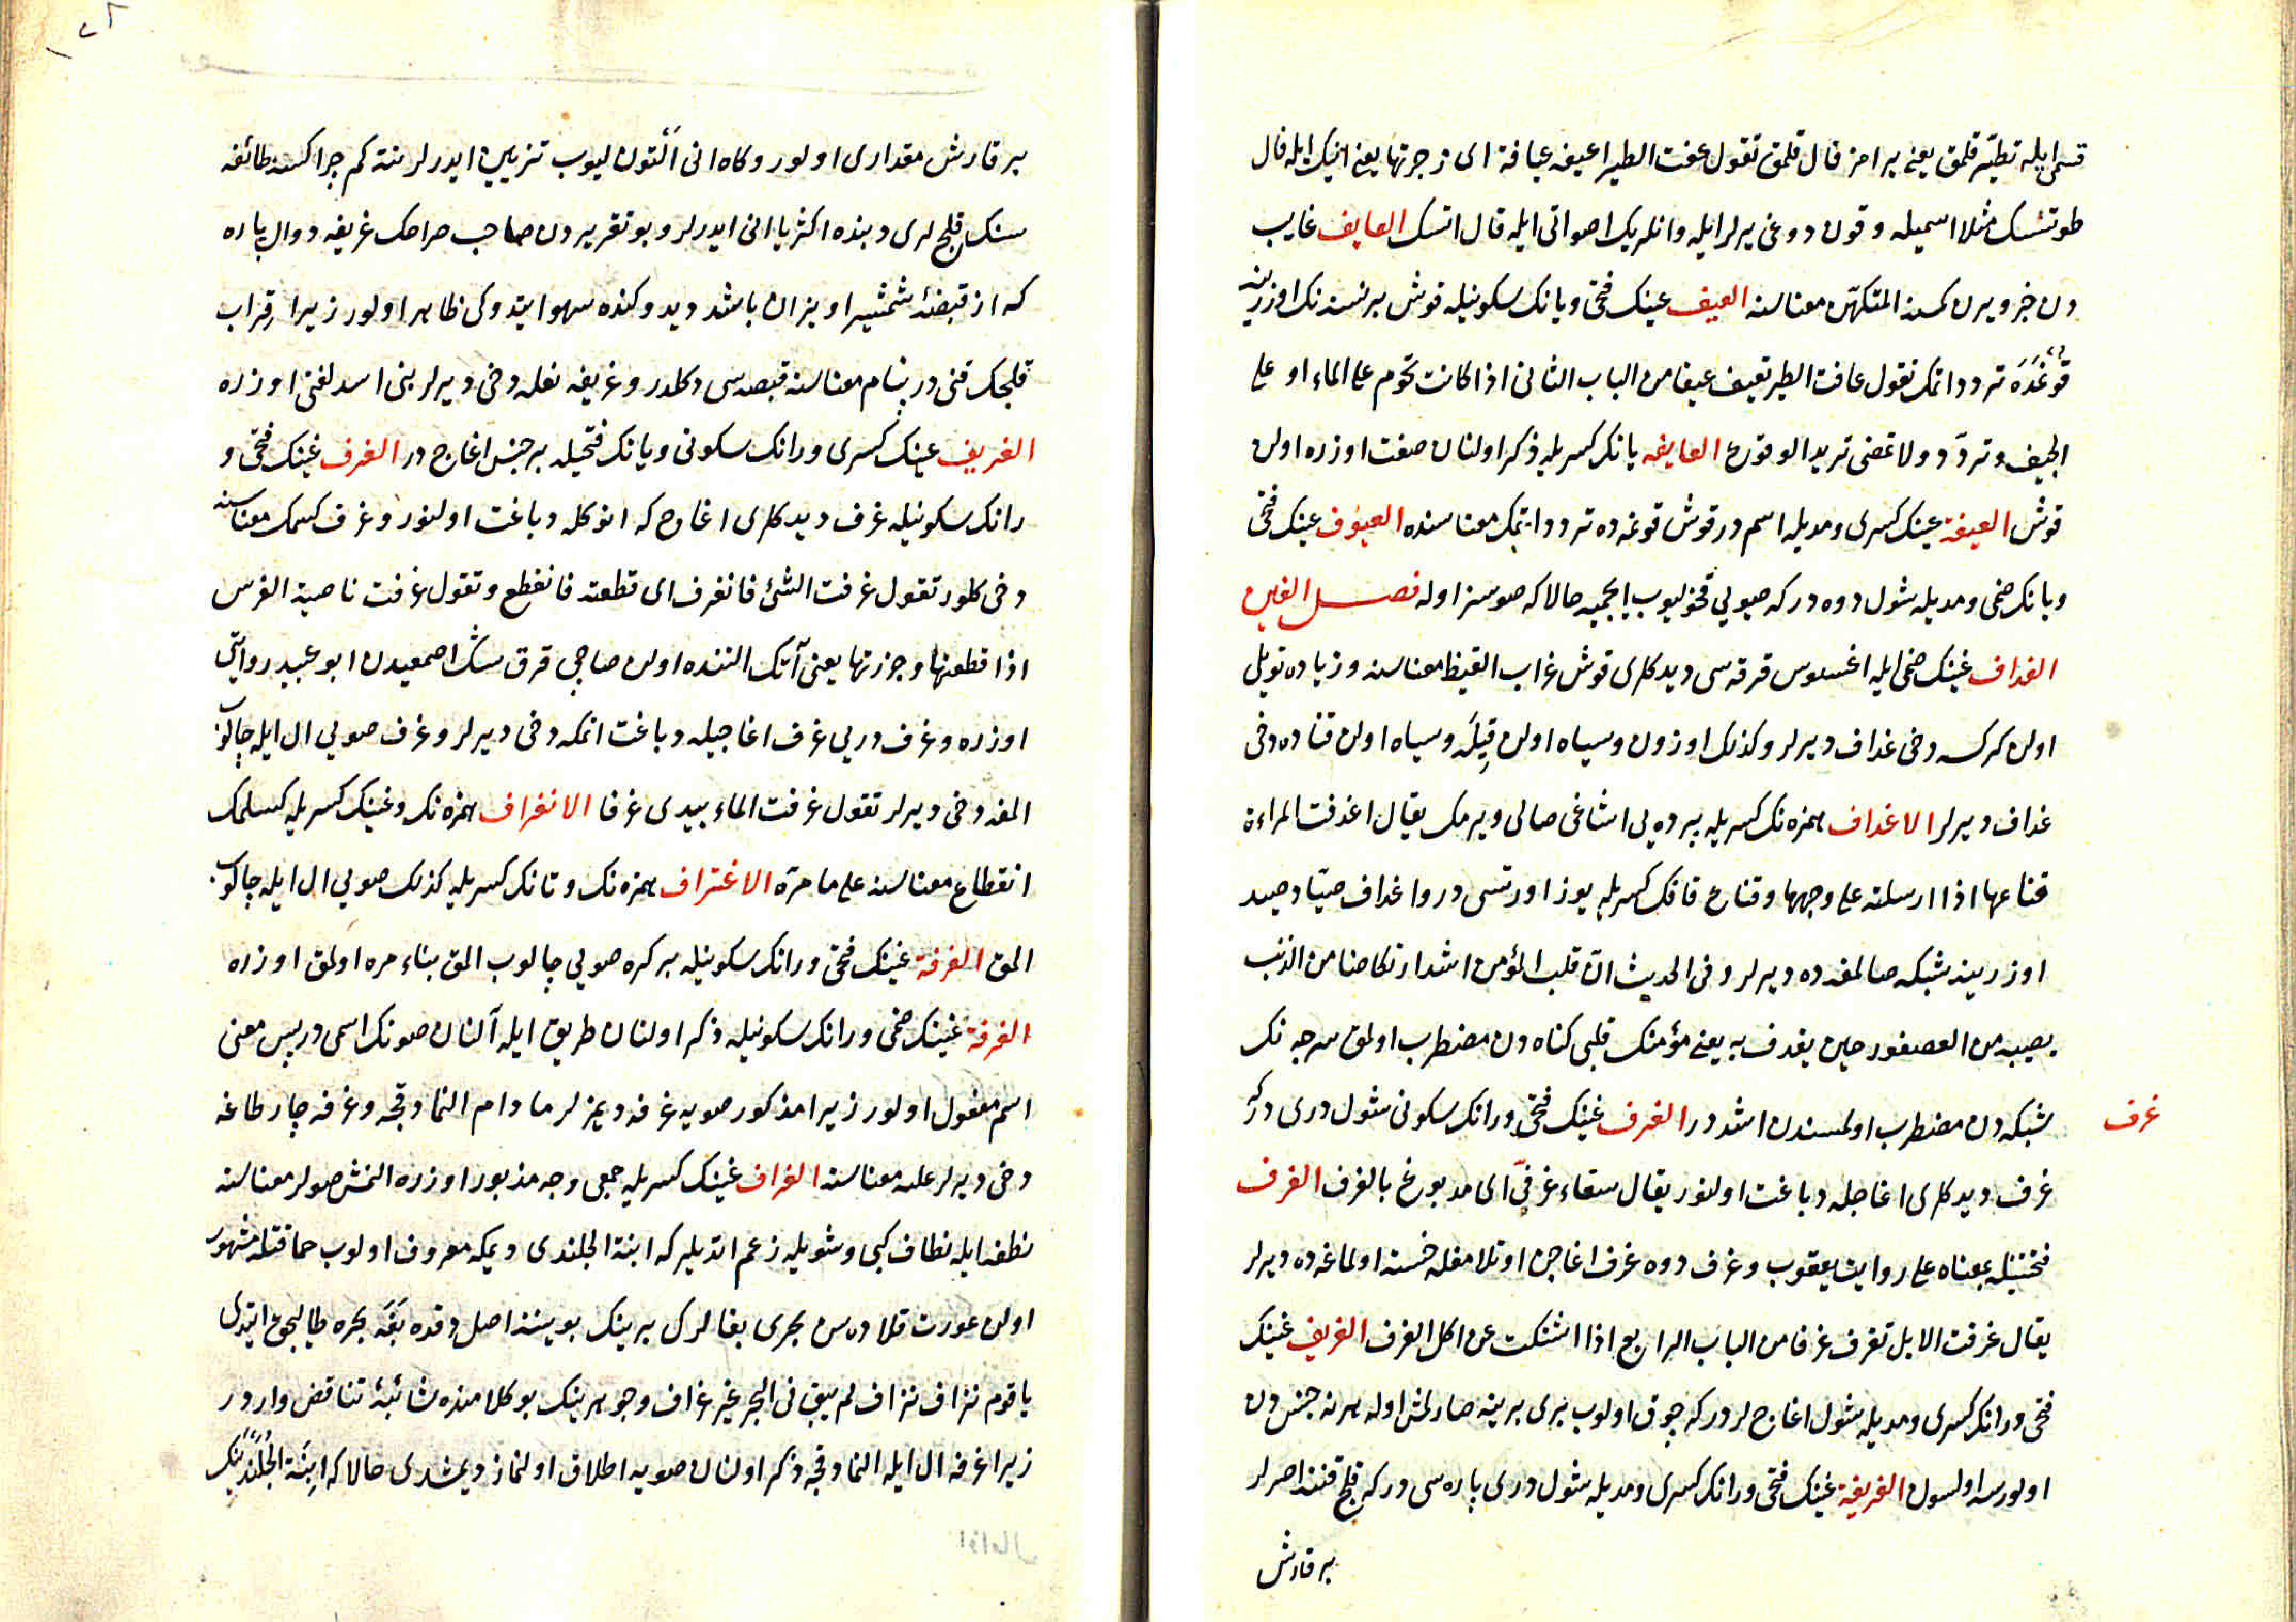 قسمى ايله تطيّر قلمق يعنى يرامز فال قلمق تقول عفت الطير اعيفه عيافة اى زجرتها يعنى انيك ايله فال
طوتمق مثلا اسميله وقون دوغى يرلر ايله وانلريك اصواتى ايله فال اتمك العايف غايب
دن خبر ويرن كمسنه المتكهّن معناسنه العيف عينك فتحى ويانك سكونيله قوش بر نسنه نك اوزرينه
قونمغده تردد اتمك تقول عافت الطير تعيف عيفا من الباب الثانى اذا كانت تحوم على الماء او على
الجيف وتردّد ولا تمضى تريد الوقوع العايفه يانك كسريله ذكر اولنان صفت اوزره اولن
قوش العيفة عينك كسرى ومديله اسمدر قوش قونمه ده تردد ايتمك معناسنده العيوف عينك فتحى
ويانك ضمى ومديله شول دوه دركه صويى قخوليوب ايچميه حالا كه صوسز اوله فصل الغين
الغداف غينك ضمى ايله اغسوس قرقه سى ديدكلرى قوش غراب القيظ معناسنه وزياده تويلى
اولن كركسه دخى غداف ديرلر وكذلك اوزون وسياه اولن قيله وسياه اولن قناده دخى
غداف ديرلر الاغداف همزه نك كسريله پرده يى اشاغى صالى ويرمك يقال اغدفت المراءة
قناعها اذا ارسلته على وجهها وقناع قافك كسريله يوز اورتسى در واغداف صيّاد صيد
اوزرينه شبكه صالمغده ديرلر وفى الحديث انّ قلب المؤمن اشد ارتكاضا من الذنب
يصيبه من العصفور حين يغدف به يعنى مؤمنك قلبى كناه دن مضطرب اولمق سرجه نك
شبكه دن مضطرب اولمسندن اشددر الغرف غينك فتحى ورانك سكونى شول درى دركه
غرف
غرف ديدكلرى اغاجله دباغت اولنور يقال سقاء غرفىّ اى مدبوغ بالغرف الغرف
فتحتينله بمعناه على روايت يعقوب وغرف دوه غرف اغاجن اوتلامغله خسته اولماغه ده ديرلر
يقال غرفت الابل تغرف غرفا من الباب الرابع اذا اشتكت عن اكل الغرف الغريف غينك
فتحى ورانك كسرى ومديله شول اغاجلردركه چوق اولوب برى برينه صارلمش اوله هر نه جنس دن
اولورسه اولسون الغريفة غينك فتحى ورانك كسرى ومديله شول درى پاره سى دركه قلج قننه اصرلر
بر قارش
بر قارش مقدارى اولور وكاه انى التون ليوب تزيين ايدرلر نته كم چراكسه طائفه
سنك قلجلرى دبنده اكثريا انى ايدرلر وبو تقريردن صاحب صراحك غريفه دوال پاره
كه از قبضهٔ شمشير اويزان باشد ديدوكنده سهو ايتدوكى ظاهر اولور زيرا قراب
قلجك قنى در نيام معناسنه قبضه سى دكلدر وغريفه نعله دخى ديرلر بنى اسد لغتى اوزره
الغريف غينك كسرى ورانك سكونى ويانك فتحيله بر جنس اغاج در الغرف غينك فتحى و
رانك سكونيله غرف ديدكلرى اغاج كه انوكله دباغت اولنور وغرف كسمك معناسنه
دخى كلور تقول غرفت الشئ فانغرف اى قطعته فانقطع وتقول غرفت ناصية الفرس
اذا قطعتها وجززتها يعنى آتك النده اولن صاچى قرق سك اصمعيدن ابو عبيد روايتى
اوزره وغرف دريى غرف اغاجيله دباغت اتمكه دخى ديرلر وغرف صويى ال ايله چالوب
المغه دخى ديرلر تقول غرفت الماء بيدى غرفا الانغراف همزه نك وغينك كسريله كسلمك
انقطاع معناسنه على ما مرّه الاغتراف همزه نك وتانك كسريله كذلك صويى ال ايله چالوب
المق الغرفة غينك فتحى ورانك سكونيله بر كره صويى چالوب المق بناء مره اولمق اوزره
الغرفة غينك ضمى ورانك سكونيله ذكر اولنان طريق ايله آلنان صونك اسمى در پس معنى
اسم مفعول اولور زيرا مذكور صويه غرفه ديمزلر مادام النمادقچه وغرفه چار طاغه
دخى ديرلر علىه معناسنه الغراف غينك كسريله جمعى وجه مذبور اوزره النمش صولر معناسنه
نطفه ايله نطاف كبى وشويله زعم اتديلر كه ابنة الجلندى ديمكه معروف اولوب حماقتله مشهور
اولن عورت قلاده سن بحرى بغالرك برينك بوينه اصل دقده بغه بحره طالبجق ايتدى
يا قوم نزاف نزاف لم يبق فى البحر غير غراف وجوهرينك بو كلامنده شائبهٔ تناقض واردر
زيرا غرفه ال ايله النمادقچه ذكر اولنان صويه اطلاق اولنماز ديمشدى حالا كه ابنة الجلندينك